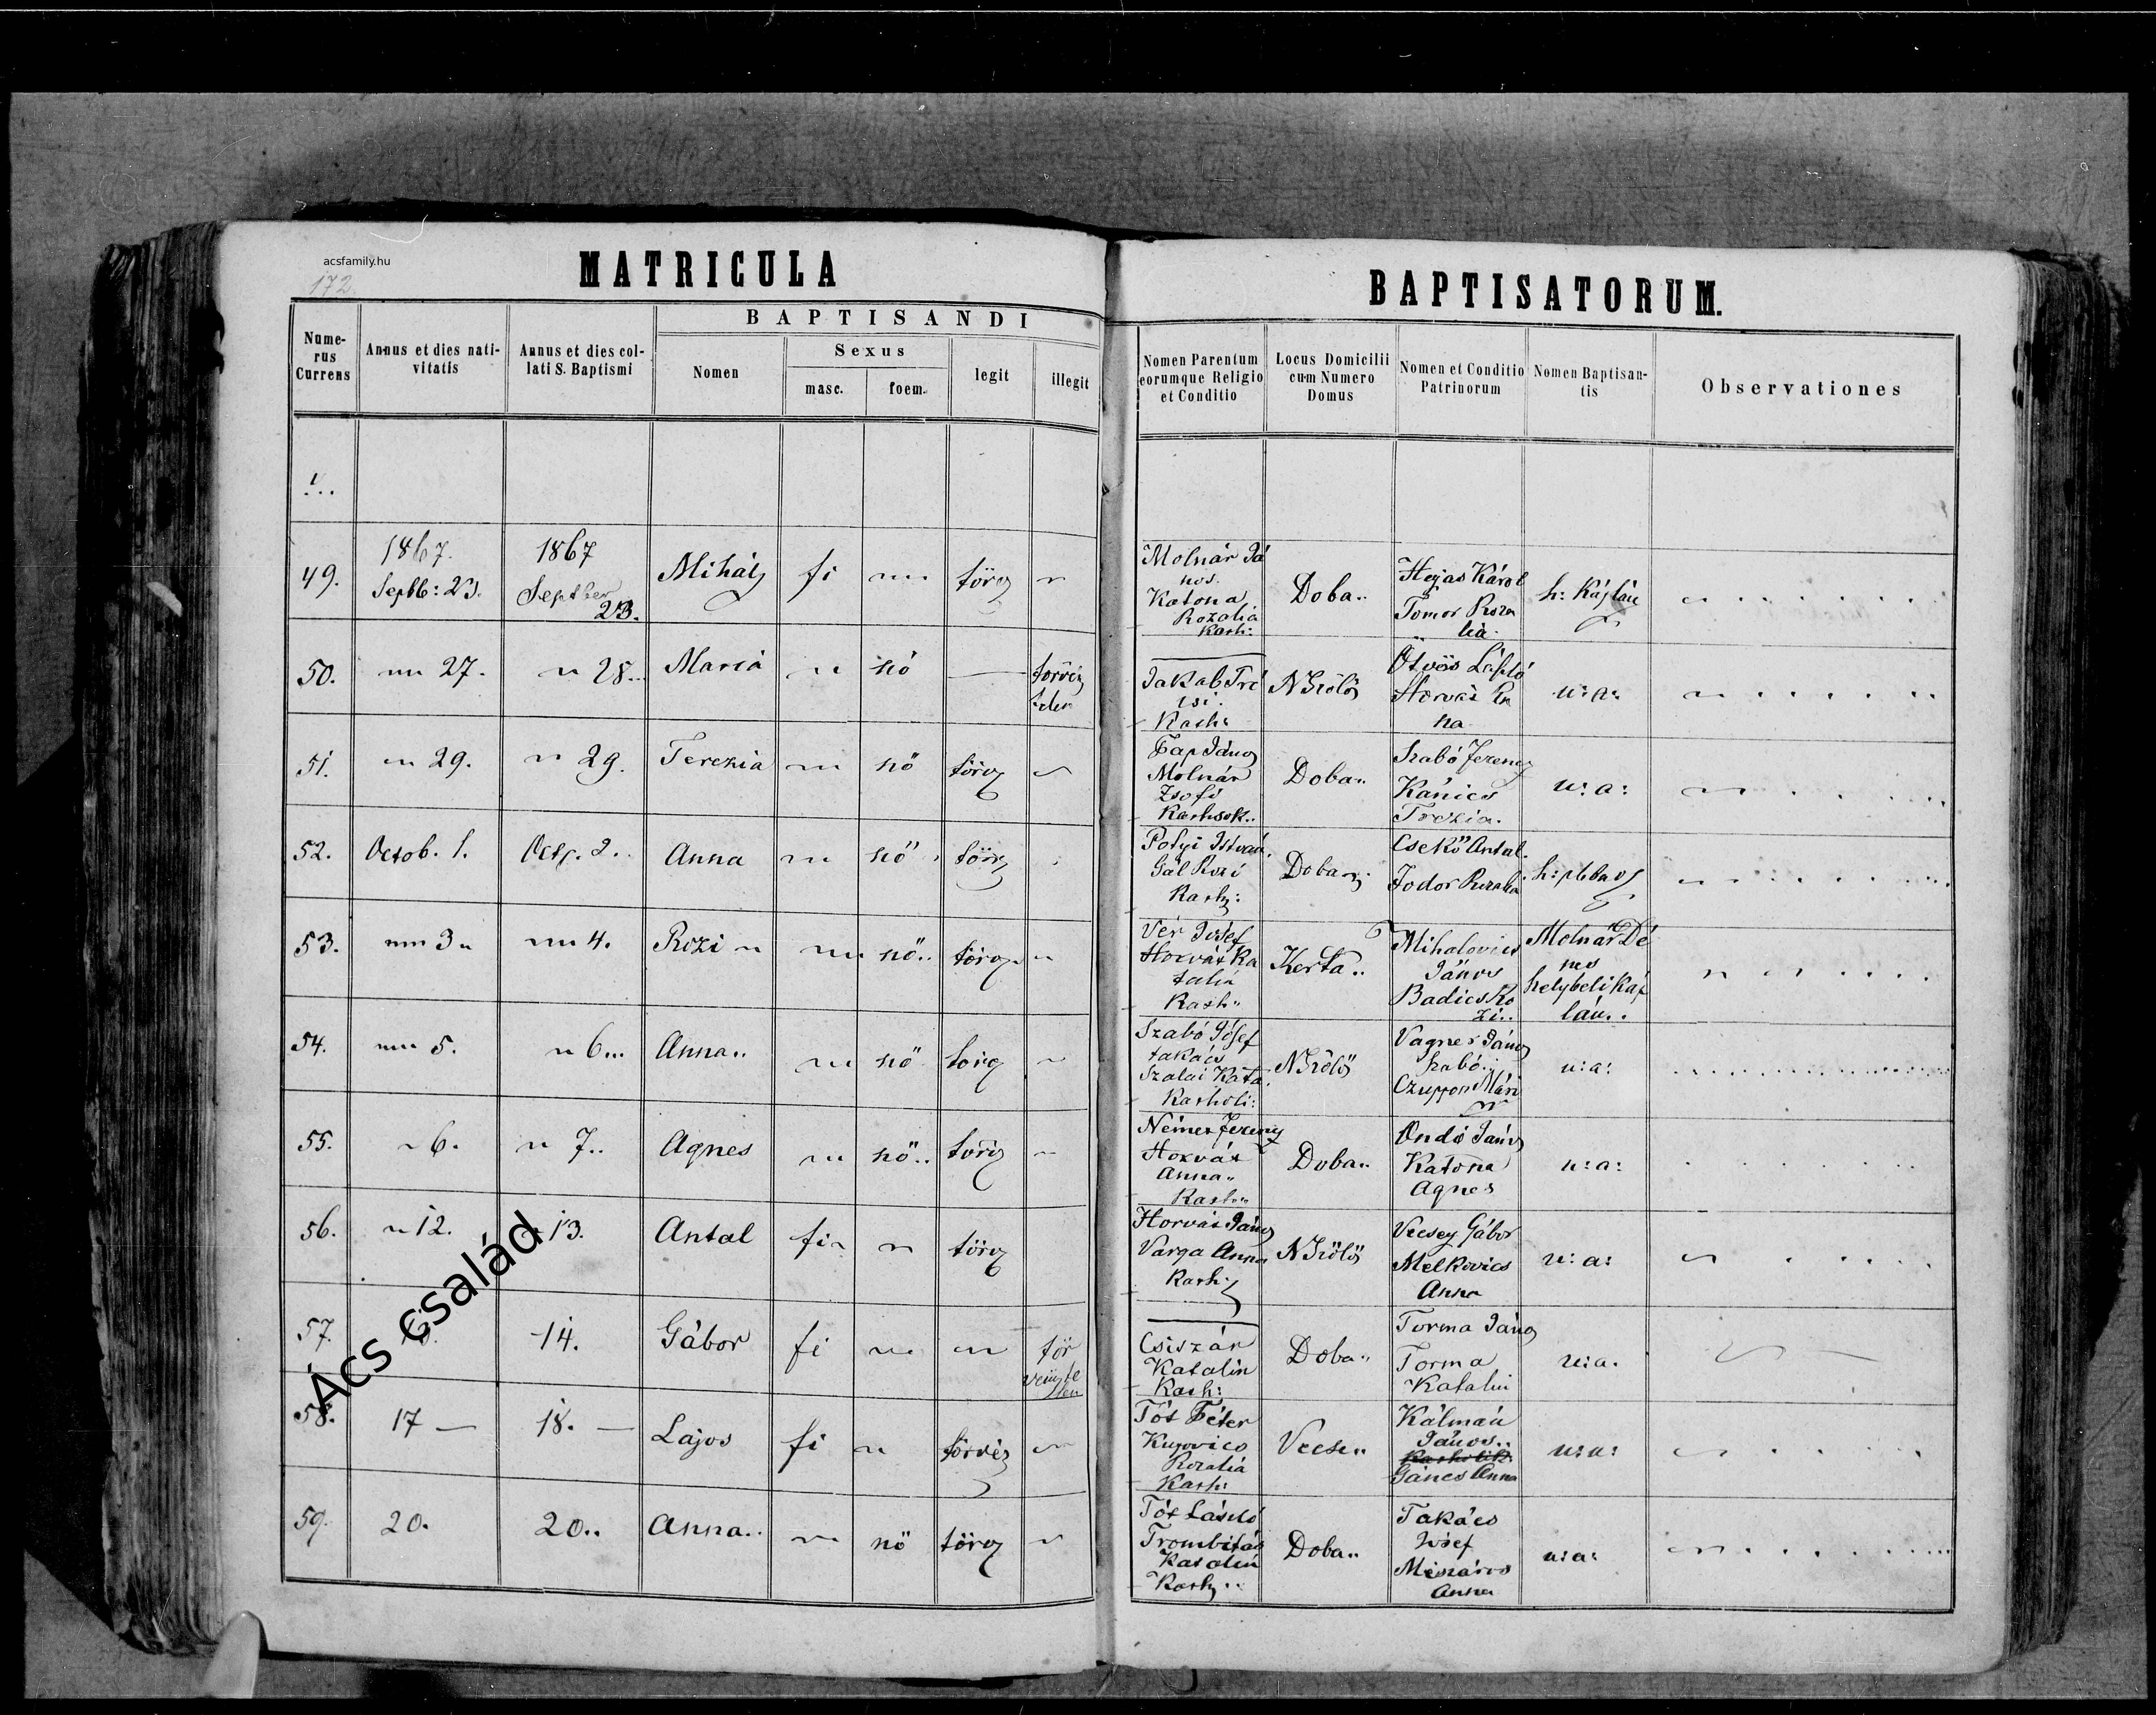 acsfamily.hu
172.
MATRICULA
BAPTISATORUM.
Nume-
rus
Currens
Annus et dies nati-
vitatis
Annus et dies col-
lati S. Baptismi
BAPTISANDI
Nomen
Sexus
masc.
foem.
legit
illegit
Nomen Parentum
eorumque Religio
et Conditio
Locus Domicilii
cum Numero
Domus
Nomen et Conditio
Patrinorum
Nomen Baptisan-
tis
Observationes
49.
1867.
Septb: 23.
1867
September
23.
Mihály
fi
törv
Molnár Já
nos.
Katona
Rozalia
Kath:
Doba..
Hejas Károl
Tomor Roza
lia.
h: Káplán
50.
27.
28..
Maria
nő
törvény
telen
Jakab Tré
isi.
Kath:
NSzölős
Ötvös László
Horvát An
na
u: a:
51.
29.
29.
Terezia
nő
törv
Pap János
Molnár
Zsofi
Kathsok..
Doba..
Szabó Ferencz
Kánics
Trezia.
u: a:
52.
Octob. 1.
Octo. 2.
Anna
nő
törv
Potyi István.
Gál Rozi
Kath:
Doba
Csekő Antal.
Fodor Rozalia
h: plebános
53.
3
4.
Rozi
nő..
törv
Vér Josef
Horvát Ka
talin
Kath..
Kerta..
Mihalovics
János
Badics Ro
zi..
Molnár Dé
nes
helybeli Káp
lán..
54.
5.
6...
Anna..
nő
törv
Szabó Jósef
takács
Szalai Kata.
Katholi:
NSzölős
Vagner János
szabó..
Czuppon Mári
u: a:
55.
6.
7..
Agnes
nő..
törv
Német Ferencz
Horvát
Anna..
Kath..
Doba..
Ondó János
Katona
Agnes
u: a:
56.
12.
13.
Antal
fi
törv
Horvát János
Varga Anna
Kath:
NSzölős
Vecsey Gábor
Melkovics
Anna
u: a:
57.
14.
Gábor
fi
tör
vényte
len
Csiszár
Katalin
Kath:
Doba..
Torma János
Torma
Katalin
u: a.
58.
17 —
18. —
Lajos
fi
törvény
Tót Péter
Kujovics
Rozalia
Kath:
Vecse..
Kálmán
János..
Katholik.
Gáncs Anna
u: a:
59.
20.
20..
Anna..
nő
törv
Tót László
Trombitás
Katalin
Kath..
Doba..
Takács
Josef
Mészáros
Anna
u: a:
Ács család